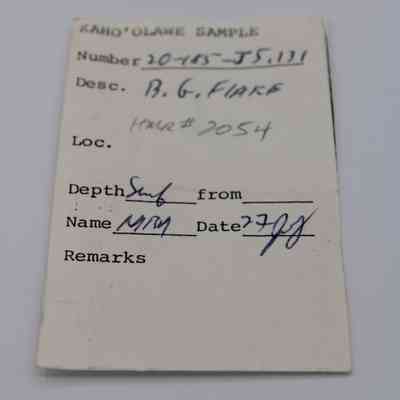 KAHO'OLAWE SAMPLE
Number 20-185-J5,131
Desc. B.G. FLAKE
HHLR# 2054
Loc.
Depth Surf from
Name MRM Date 27
Remarks